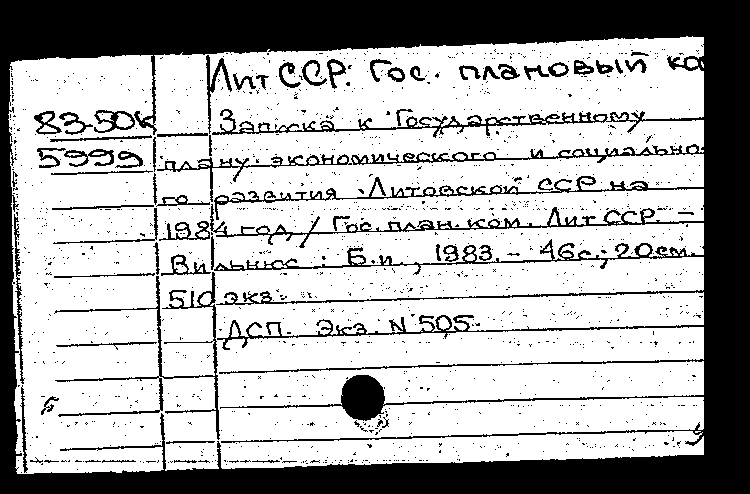 Лит ССР. Гос. плановый ко
83-50к Записка к Государственному
5999 плану экономического и социально-
го развития Литовской ССР на
1984 год / Гос. план. ком. Лит ССР. –
Вильнюс : Б.и., 1983. – 46с.; 20см.
510 экз.
ДСП. Экз. N 505.
Б